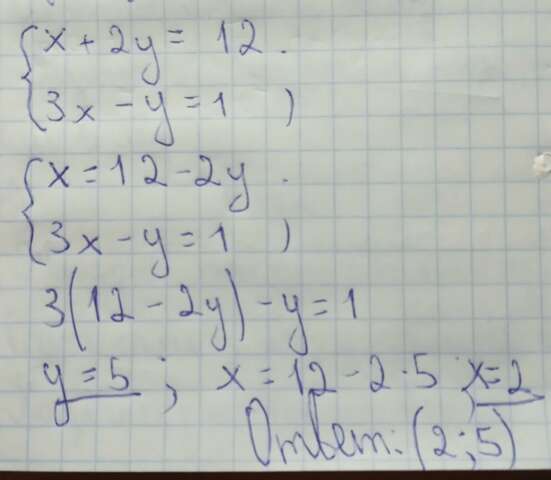 x + 2y = 12.
3x - y = 1 )
x = 12 - 2y.
3x - y = 1 )
3(12 - 2y) - y = 1
y = 5 ; x = 12 - 2 · 5 ; x = 2
Ответ: (2; 5)